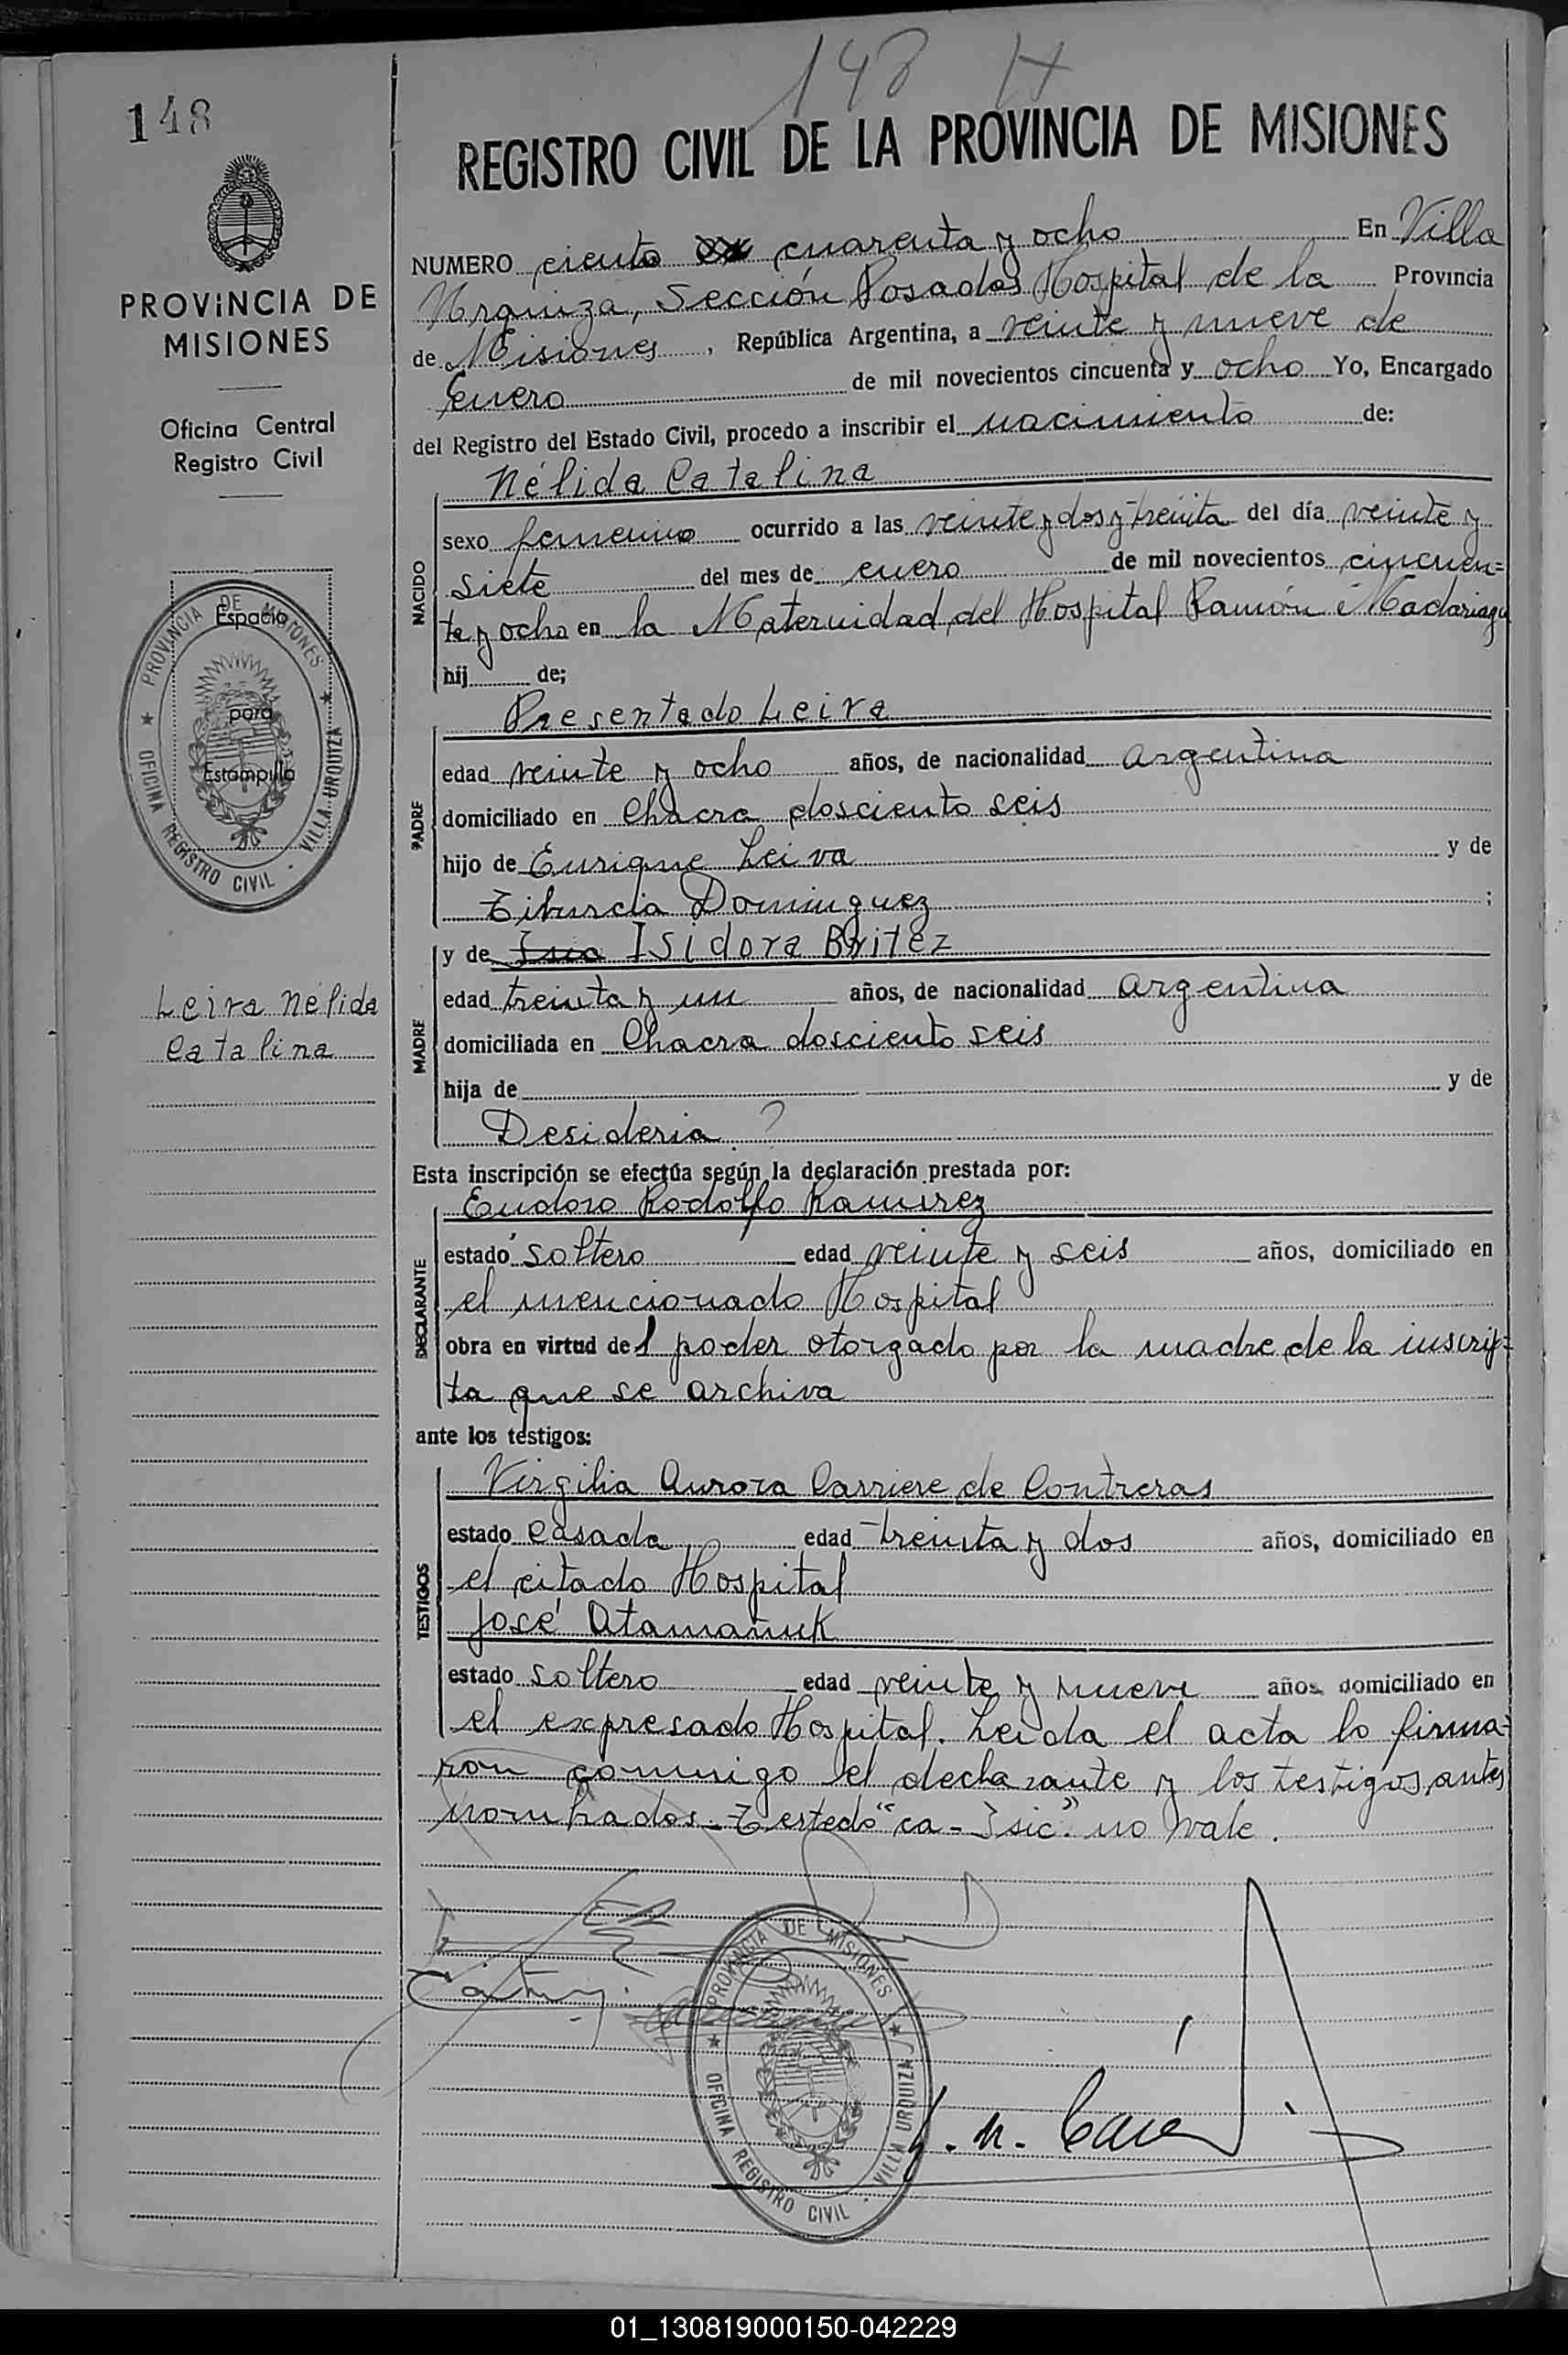 148 H
148
REGISTRO CIVIL DE LA PROVINCIA DE MISIONES
PROVINCIA DE
MISIONES
Oficina Central
Registro Civil
PROVINCIA DE MISIONES
OFICINA REGISTRO CIVIL - VILLA URQUIZA
Espacio
para
Estampilla
Leiva Nélida
Catalina
NUMERO ciento cuarenta y ocho En Villa
Urquiza, Sección Posadas Hospital de la Provincia
de Misiones, República Argentina, a veinte y nueve de
Enero de mil novecientos cincuenta y ocho Yo, Encargado
del Registro del Estado Civil, procedo a inscribir el nacimiento de:
Nélida Catalina
NACIDO
sexo femenino ocurrido a las veinte y dos y treinta del día veinte y
siete del mes de enero de mil novecientos cincuen=
ta y ocho en la Maternidad del Hospital Ramón Madariaga
hij de;
Presentado Leiva
PADRE
edad veinte y ocho años, de nacionalidad argentina
domiciliado en Chacra dosciento seis
hijo de Enrique Leiva y de
Tiburcia Dominguez ;
y de Isic Isidora Britez
MADRE
edad treinta y un años, de nacionalidad argentina
domiciliada en Chacra dosciento seis
hija de y de
Desideria ?
Esta inscripción se efectúa según la declaración prestada por:
Eudoro Rodolfo Ramirez
DECLARANTE
estado soltero edad veinte y seis años, domiciliado en
el mencionado Hospital
obra en virtud del poder otorgado por la madre de la inscrip=
ta que se archiva
ante los testigos:
Virgilia Aurora Carriere de Contreras
TESTIGOS
estado casada edad treinta y dos años, domiciliado en
el citado Hospital
José Atamañuk
estado soltero edad veinte y nueve años domiciliado en
el expresado Hospital. Leida el acta lo firma=
ron conmigo el declarante y los testigos antes
nombrados. Testedó "ca - Isic" no vale.
PROVINCIA DE MISIONES
OFICINA REGISTRO CIVIL - VILLA URQUIZA
01_130819000150-042229